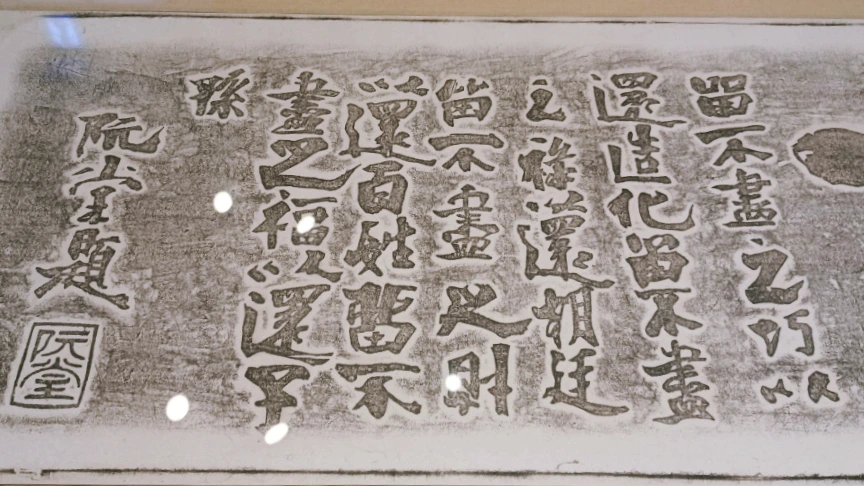 留不盡之巧以
還造化留不盡
之祿以還朝廷
留不盡之財
以還百姓留不
盡之福以還子
孫
阮堂題
阮堂